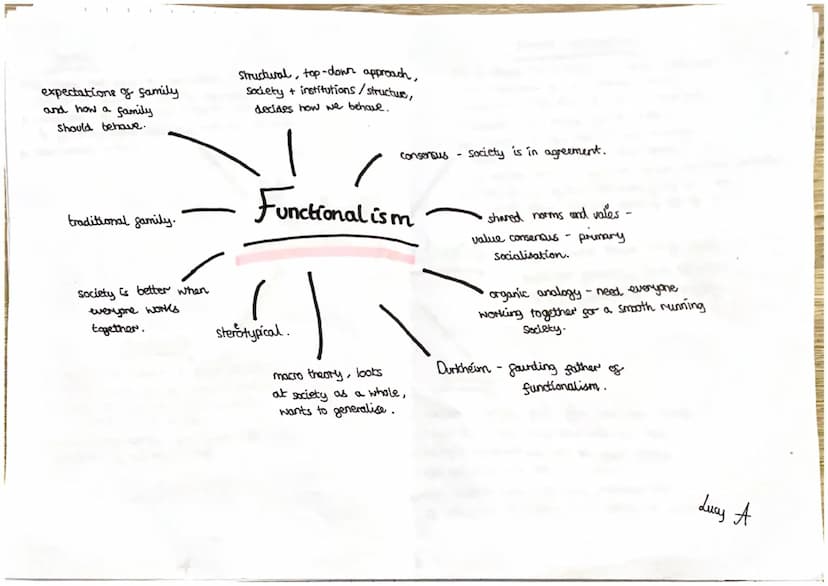 structural, top-down approach,
society + institutions/structure,
decides how we behave.
expectations of family
and how a family
should behave.
consensus - society is in agreement.
Functionalism
traditional family.
shared norms and vales -
value consensus - primary
socialisation.
society is better when
everyone works
together.
organic analogy - need everyone
working together for a smooth running
society.
sterotypical.
Durkheim - founding father of
functionalism.
macro theory, looks
at society as a whole,
wants to generalise.
Lucy A